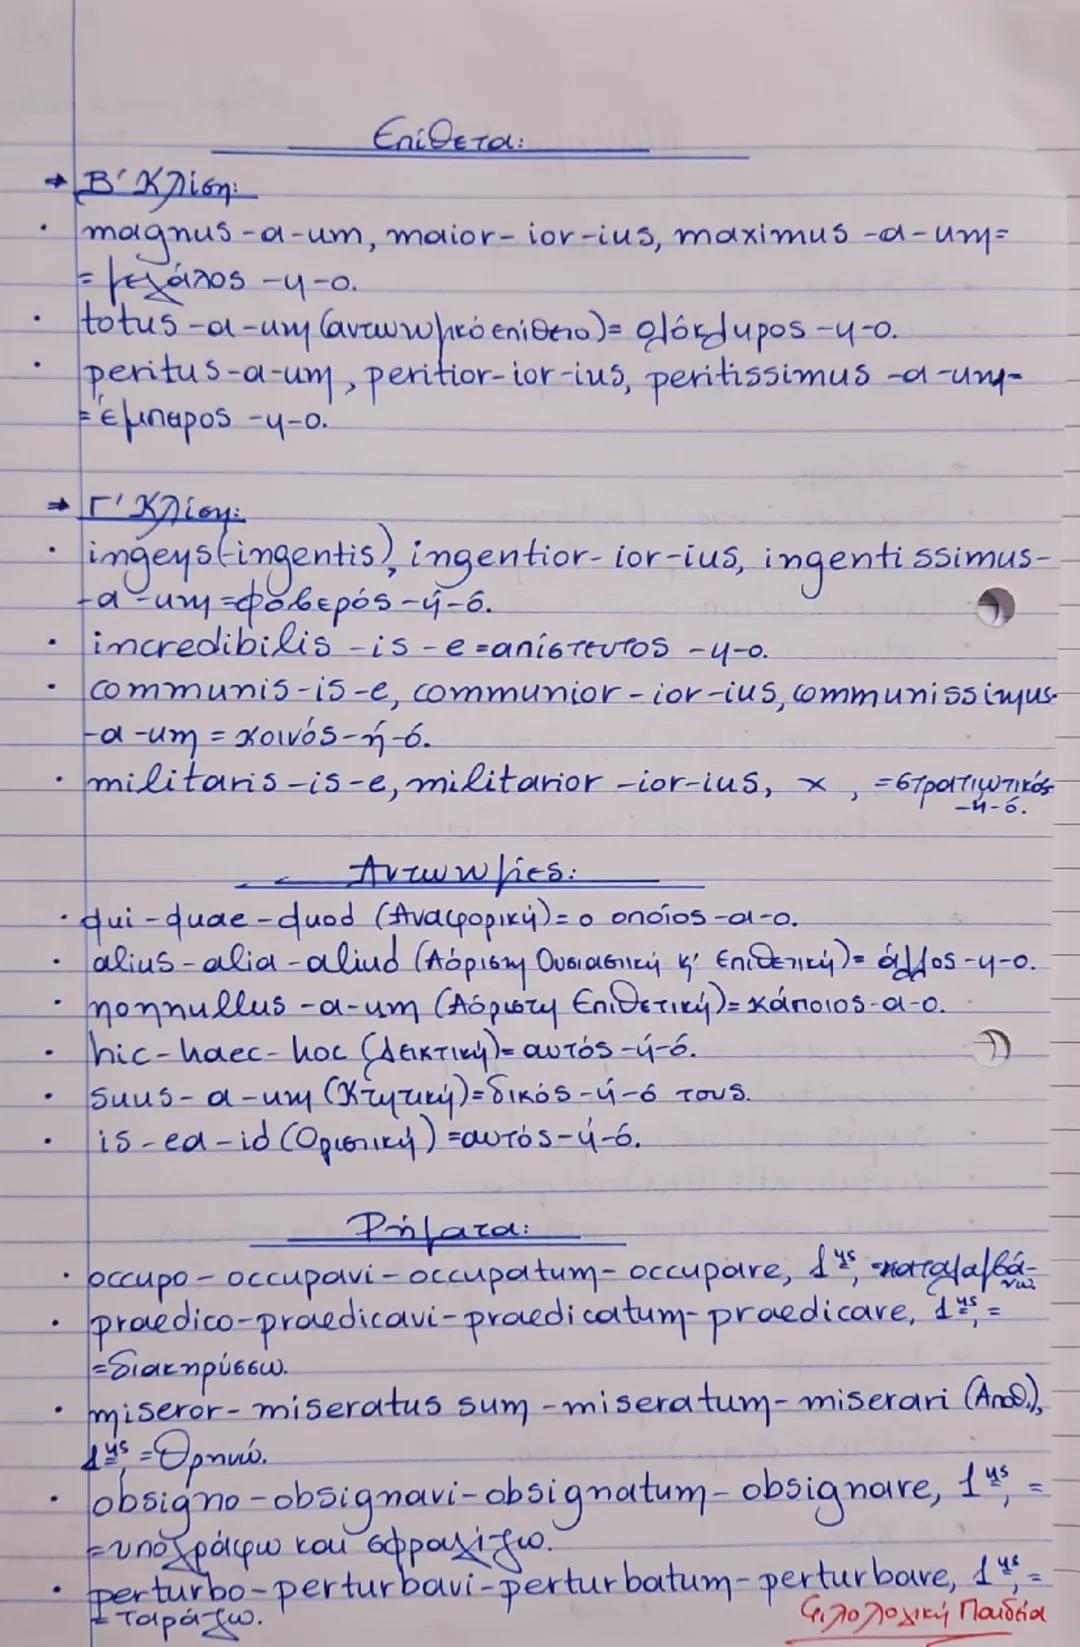 Επίθετα:
→ Β' Κλίση:
· magnus -a-um, maior- ior-ius, maximus -a-um=
= μεγάλος -η-ο.
· totus -a-um (αντωνυμικό επίθετο)= ολόκληρος -η-ο.
· peritus-a-um, peritior-ior-ius, peritissimus -a-um-
= έμπειρος -η-ο.
→ Γ' Κλίση:
· ingens(-ingentis), ingentior- ior-ius, ingentissimus-
-a-um =φοβερός -ή-ό.
· incredibilis -is -e =απίστευτος -η-ο.
· communis-is-e, communior - ior-ius, communissimus-
-a -um = κοινός-ή-ό.
· militaris -is-e, militarior -ior-ius, x , =στρατιωτικός
-ή-ό.
Αντωνυμίες:
· qui - quae - quod (Αναφορική)= ο οποίος -α-ο.
· alius - alia - aliud (Αόριστη Ουσιαστική κ' Επιθετική)= άλλος -η-ο.
· nonnullus -a-um (Αόριστη Επιθετική)= κάποιος-α-ο.
· hic-haec- hoc (Δεικτική)= αυτός -ή-ό.
· suus- a -um (Κτητική)= δικός -ή-ό τους.
· is - ea - id (Οριστική) =αυτός-ή-ό.
Ρήματα:
· occupo - occupavi - occupatum- occupare, 1ης, =καταλαμβά-
νω
· praedico-praedicavi-praedicatum-praedicare, 1ης, =
=διακηρύσσω.
· miseror- miseratus sum -miseratum- miserari (Αποθ.),
1ης, =Θρηνώ.
· obsigno -obsignavi-obsignatum- obsignare, 1ης, =
=υπογράφω και σφραγίζω.
· perturbo-perturbavi-perturbatum-perturbare, 1ης, =
= ταράζω.
Φιλολογική Παιδεία